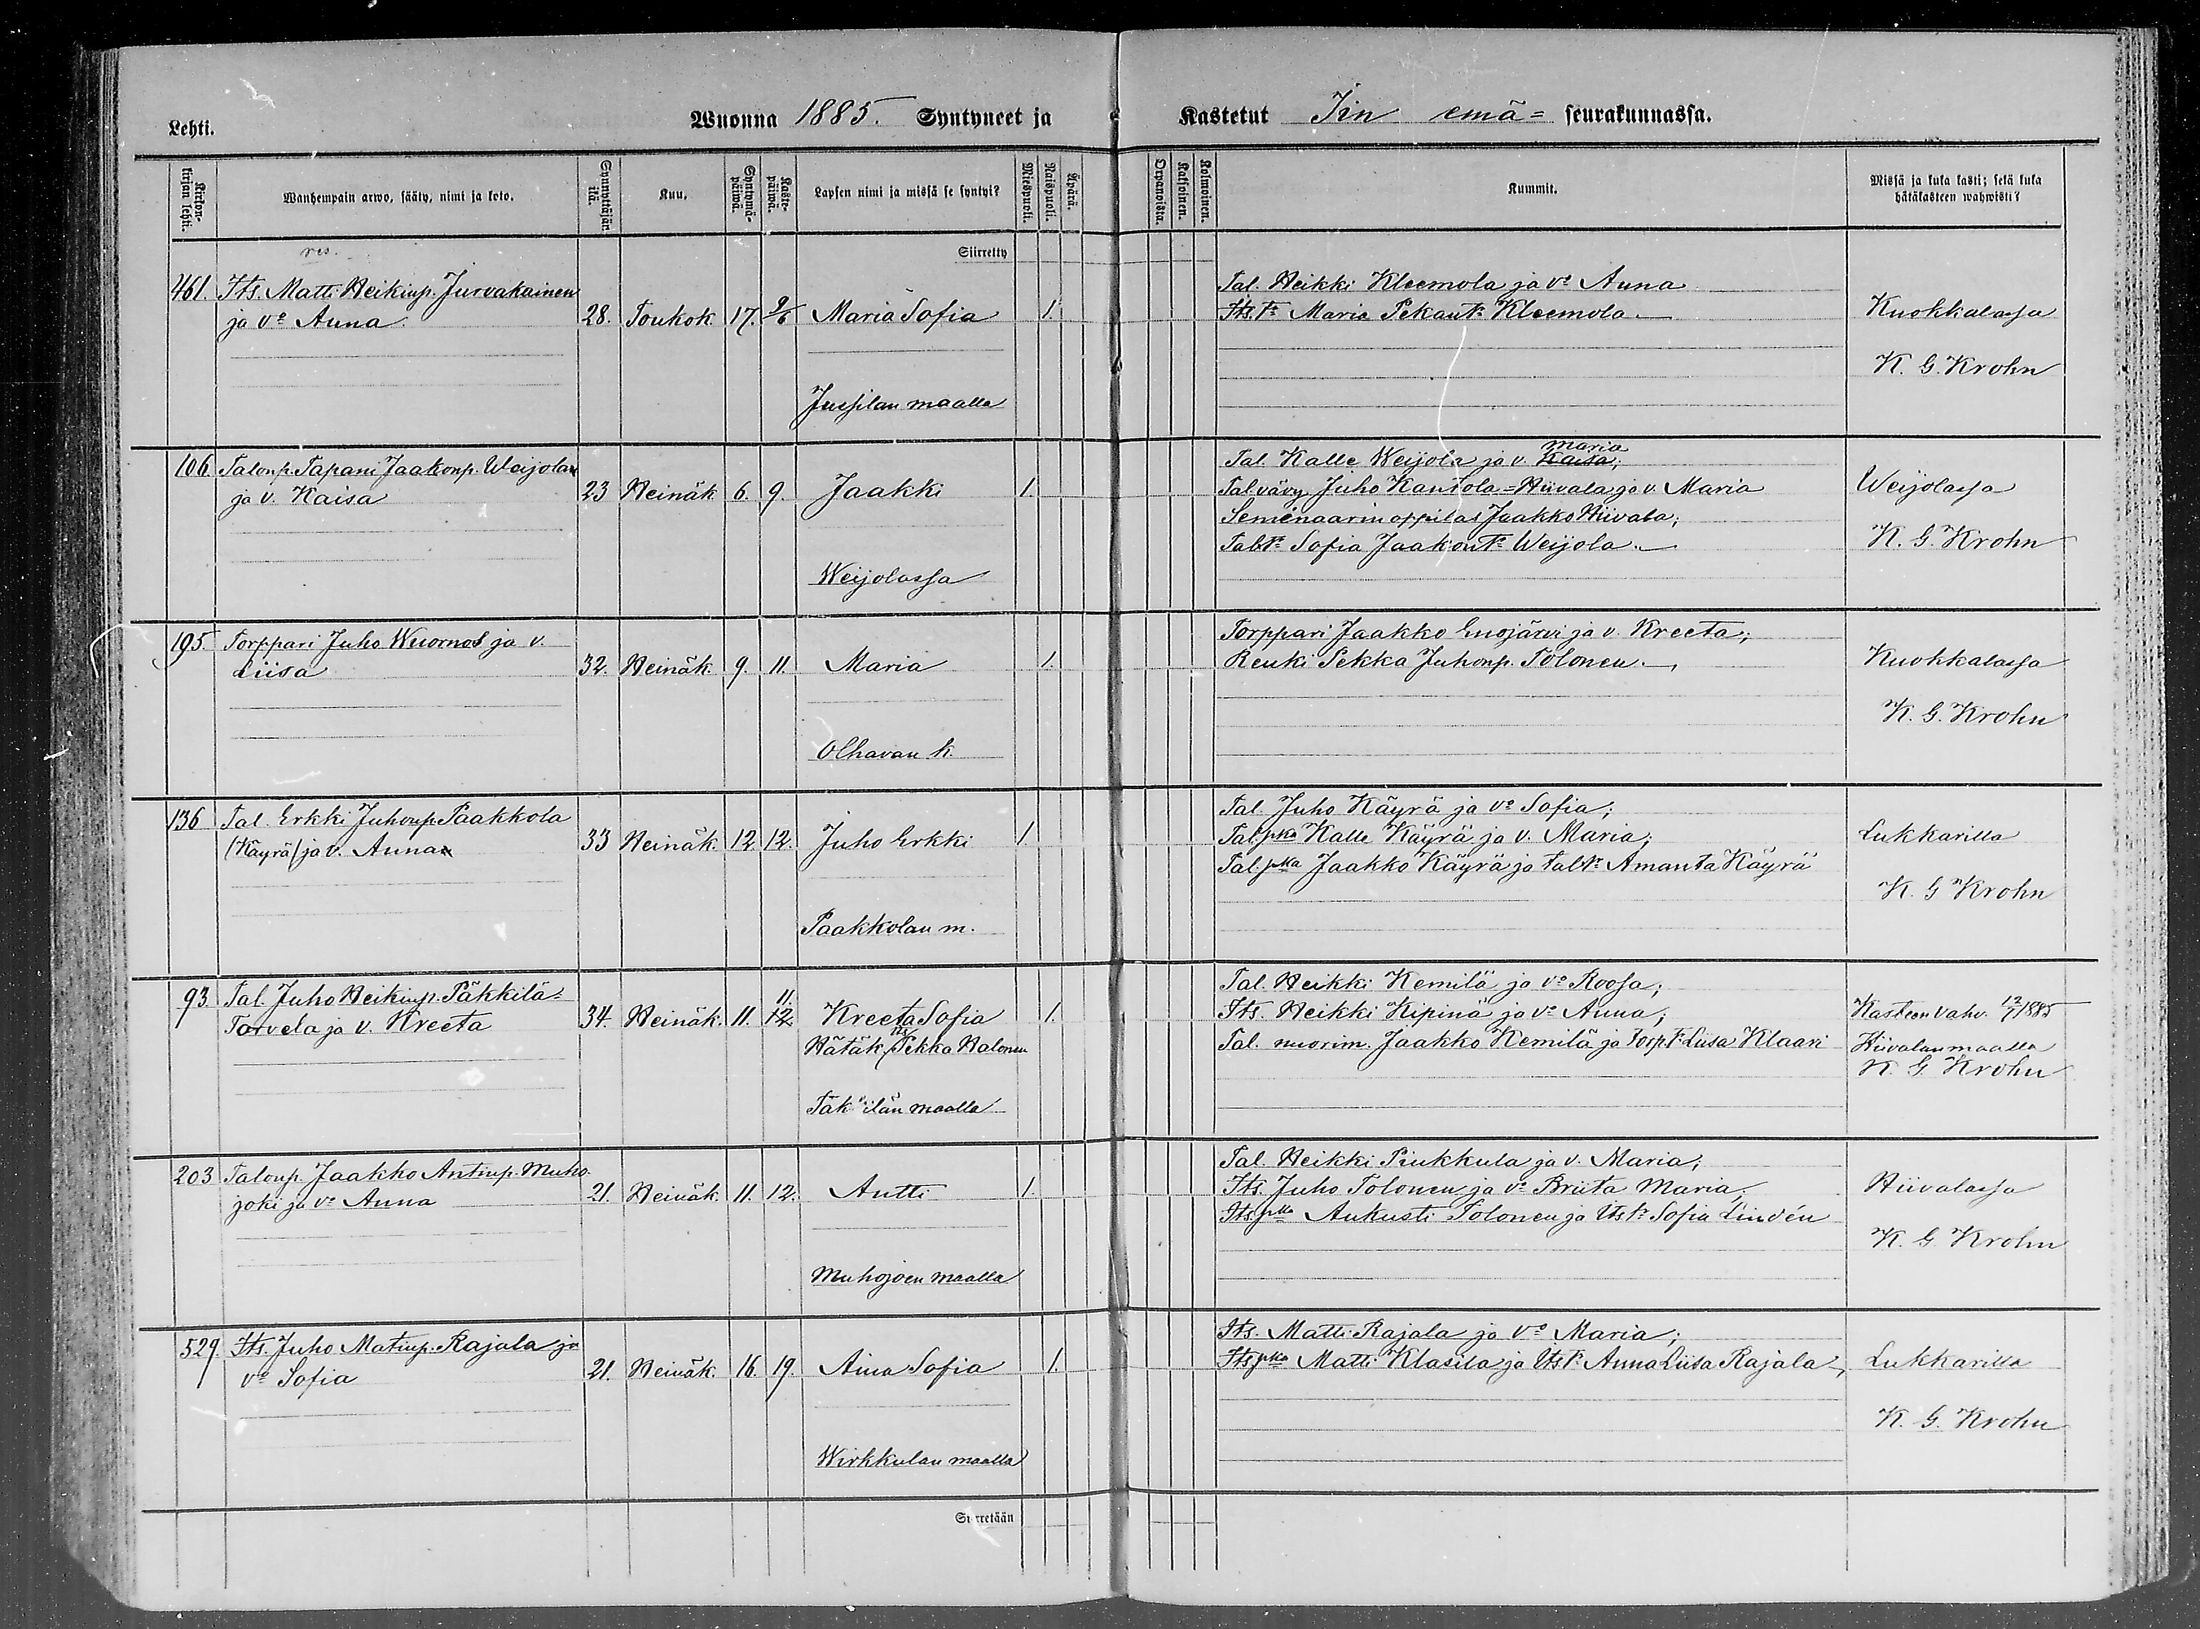 Lehti.
Wuonna 1885. Syntyneet ja
Kastetut Iin emä= seurakunnassa.
Kirkon-kirjan lehti.
Wanhempain arwo, sääty, nimi ja koto.
Synnyttäjän ikä.
Kuu.
Syntymä-päiwä.
Kaste-päiwä.
Lapsen nimi ja missä se syntyi?
Miespuoli.
Naispuoli.
Äpärä.
Orpanoista.
Kaksoinen.
Kolmoinen.
Kummit.
Missä ja kuka kasti; sekä kuka
hätäkasteen wahwisti?
Siirretty
res.
461. Its. Matti Heikinp. Jurvakainen
ja vo Anna. 28. Toukok 17. 9/6 Maria Sofia 1.
Jussilan maalla
Tal. Heikki Kleemola ja vo Anna
Its tr Maria Pekantr Kleemola.
Kuokkalassa
K. G. Krohn
106. Talonp. Tapani Jaakonp. Weijolan
ja v. Kaisa 23 Heinäk 6. 9. Jaakki 1.
Weijolassa
Maria
Tal. Kalle Weijola ja v. Kaisa;
Tal. vävy Juho Kantola=Hiivala ja v. Maria
Semenaarin oppilas Jaakko Hiivala;
Tal tr Sofia Jaakontr Weijola.
Weijolassa
K. G. Krohn
195 Torppari Juho Wuornos ja v.
Liisa 32. Heinäk. 9. 11. Maria 1.
Olhavan k.
Torppari Jaakko Enojärvi ja v. Kreeta;
Renki Pekka Juhonp. Tolonen.
Kuokkalassa
K. G. Krohn
136 Tal. Erkki Juhonp. Paakkola
(Käyrä) ja v. Anna 33 Heinäk. 12 12. Juho Erkki 1.
Paakkolan m.
Tal. Juho Käyrä ja vo Sofia;
Tal. pka Kalle Käyrä ja v. Maria;
Tal. pka Jaakko Käyrä ja tal tr Amanta Käyrä
Lukkarilla
K. G Krohn
93. Tal. Juho Heikinp. Päkkilä=
Tarvela ja v. Kreeta 34. Heinäk. 11. 11. 12. Kreeta Sofia 1.
Hätäk. Its Pekka Halonen
Päkkilän maalla
Tal. Heikki Kemilä ja vo Roosa;
Its. Heikki Kipinä ja vo Anna;
Tal. nuorim. Jaakko Kemilä ja torp tr Liisa Klaari
Kasteen vahv. 12/7 1885
Hiivalan maalla
K. G. Krohn
203 Talonp. Jaakko Antinp. Muho-
joki ja vo Anna 21. Heinäk. 11. 12. Antti 1.
Muhojoen maalla
Tal. Heikki Pinkkula ja v. Maria;
Its. Juho Tolonen ja vo Briita Maria;
Its pka Aukusti Tolonen ja Its tr Sofia Lindén
Hiivalassa
K. G. Krohn
529. Its. Juho Matinp. Rajala ja
vo Sofia 21. Heinäk. 16. 19. Aina Sofia 1.
Wirkkulan maalla
Its. Matti Rajala ja vo Maria;
Its pka Matti Klasila ja Its tr Anna Liisa Rajala,
Lukkarilla
K. G. Krohn
Siirretään